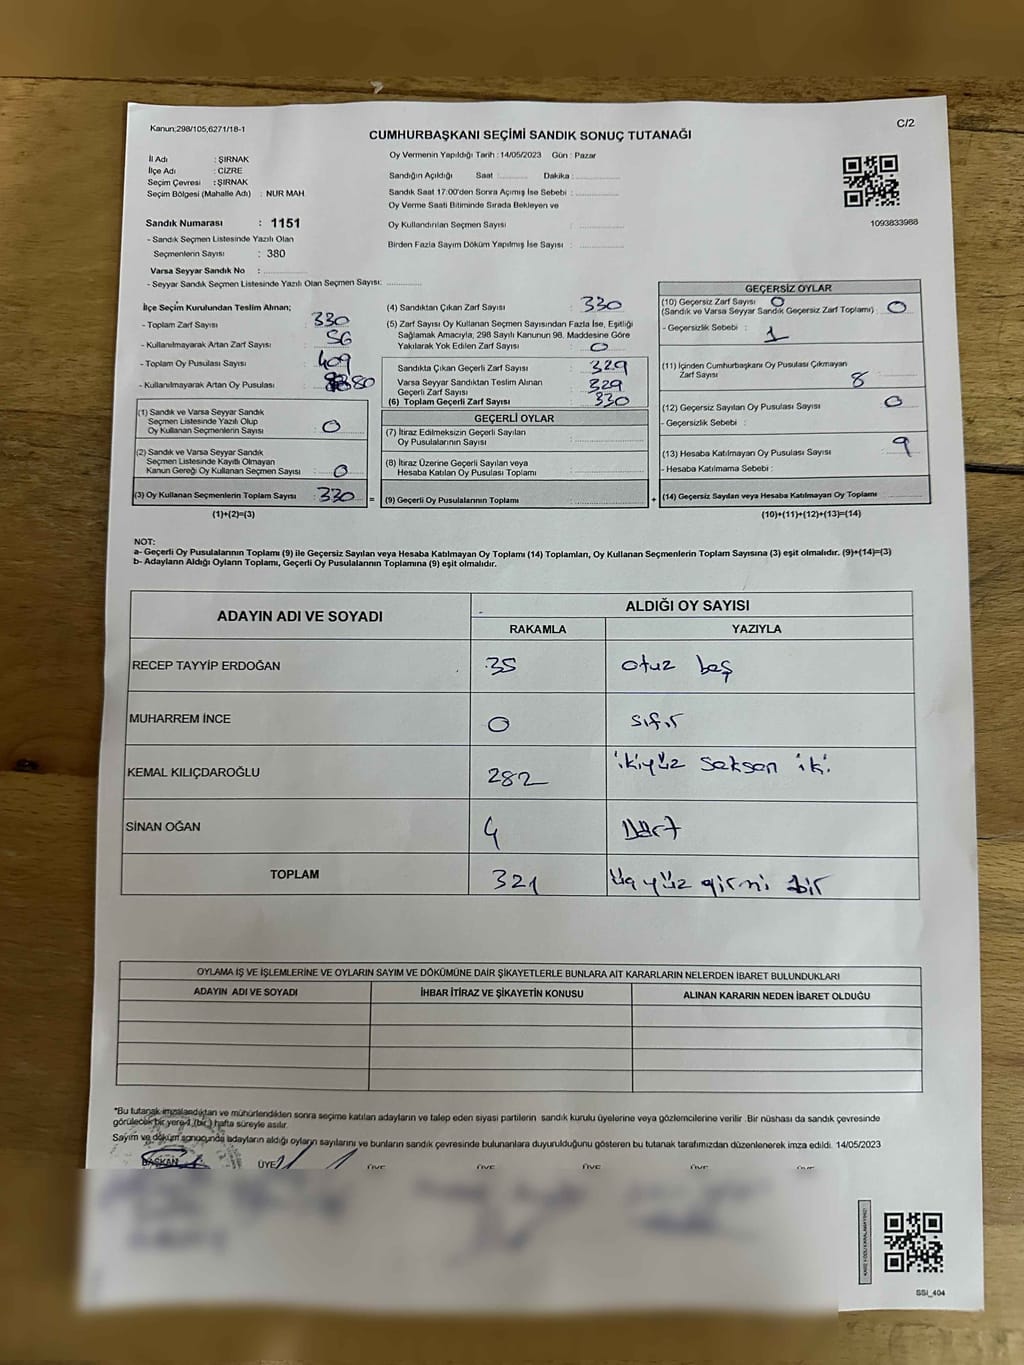 Kanun;298/105,6271/18-1
C/2
CUMHURBAŞKANI SEÇİMİ SANDIK SONUÇ TUTANAĞI
Oy Vermenin Yapıldığı Tarih : 14/05/2023 Gün : Pazar
İl Adı : ŞIRNAK
İlçe Adı : CİZRE
Seçim Çevresi : ŞIRNAK
Seçim Bölgesi (Mahalle Adı) : NUR MAH.
Sandığın Açıldığı Saat : Dakika :
Sandık Saat 17:00'den Sonra Açımış İse Sebebi :
Oy Verme Saati Bitiminde Sırada Bekleyen ve
Oy Kullandırılan Seçmen Sayısı :
Birden Fazla Sayım Döküm Yapılmış İse Sayısı :
1093833988
Sandık Numarası : 1151
- Sandık Seçmen Listesinde Yazılı Olan
Seçmenlerin Sayısı : 380
Varsa Seyyar Sandık No :
- Seyyar Sandık Seçmen Listesinde Yazılı Olan Seçmen Sayısı:
İlçe Seçim Kurulundan Teslim Alınan;
- Toplam Zarf Sayısı 330
- Kullanılmayarak Artan Zarf Sayısı : 56
- Toplam Oy Pusulası Sayısı : 409
- Kullanılmayarak Artan Oy Pusulası : 80
(1) Sandık ve Varsa Seyyar Sandık
Seçmen Listesinde Yazılı Olup
Oy Kullanan Seçmenlerin Sayısı : 0
(2) Sandık ve Varsa Seyyar Sandık
Seçmen Listesinde Kayıtlı Olmayan
Kanun Gereği Oy Kullanan Seçmen Sayısı : 0
(3) Oy Kullanan Seçmenlerin Toplam Sayısı : 330 =
(1)+(2)=(3)
(4) Sandıktan Çıkan Zarf Sayısı : 330
(5) Zarf Sayısı Oy Kullanan Seçmen Sayısından Fazla İse, Eşitliği
Sağlamak Amacıyla; 298 Sayılı Kanunun 98. Maddesine Göre
Yakılarak Yok Edilen Zarf Sayısı : 0
Sandıkta Çıkan Geçerli Zarf Sayısı : 329
Varsa Seyyar Sandıktan Teslim Alınan
Geçerli Zarf Sayısı : 329
(6) Toplam Geçerli Zarf Sayısı : 330
GEÇERLİ OYLAR
(7) İtiraz Edilmeksizin Geçerli Sayılan
Oy Pusulalarının Sayısı :
(8) İtiraz Üzerine Geçerli Sayılan veya
Hesaba Katılan Oy Pusulası Toplamı :
(9) Geçerli Oy Pusulalarının Toplamı : +
GEÇERSİZ OYLAR
(10) Geçersiz Zarf Sayısı 0
(Sandık ve Varsa Seyyar Sandık Geçersiz Zarf Toplamı) : 0
- Geçersizlik Sebebi : 1
(11) İçinden Cumhurbaşkanı Oy Pusulası Çıkmayan
Zarf Sayısı : 8
(12) Geçersiz Sayılan Oy Pusulası Sayısı : 0
- Geçersizlik Sebebi :
(13) Hesaba Katılmayan Oy Pusulası Sayısı : 9
- Hesaba Katılmama Sebebi :
(14) Geçersiz Sayılan veya Hesaba Katılmayan Oy Toplamı
(10)+(11)+(12)+(13)=(14)
NOT:
a- Geçerli Oy Pusulalarının Toplamı (9) ile Geçersiz Sayılan veya Hesaba Katılmayan Oy Toplamı (14) Toplamları, Oy Kullanan Seçmenlerin Toplam Sayısına (3) eşit olmalıdır. (9)+(14)=(3)
b- Adayların Aldığı Oyların Toplamı, Geçerli Oy Pusulalarının Toplamına (9) eşit olmalıdır.
ADAYIN ADI VE SOYADI ALDIĞI OY SAYISI
RAKAMLA YAZIYLA
RECEP TAYYİP ERDOĞAN 35 otuz beş
MUHARREM İNCE 0 sıfır
KEMAL KILIÇDAROĞLU 282 ikiyüz seksen iki
SİNAN OĞAN 4 Dört
TOPLAM 321 üç yüz yirmi bir
OYLAMA İŞ VE İŞLEMLERİNE VE OYLARIN SAYIM VE DÖKÜMÜNE DAİR ŞİKAYETLERLE BUNLARA AİT KARARLARIN NELERDEN İBARET BULUNDUKLARI
ADAYIN ADI VE SOYADI İHBAR İTİRAZ VE ŞİKAYETİN KONUSU ALINAN KARARIN NEDEN İBARET OLDUĞU
*Bu tutanak imzalandıktan ve mühürlendikten sonra seçime katılan adayların ve talep eden siyasi partilerin sandık kurulu üyelerine veya gözlemcilerine verilir. Bir nüshası da sandık çevresinde
görülecek bir yere 1 (bir) hafta süreyle asılır.
Sayım ve döküm sonucunda adayların aldığı oyların sayılarını ve bunların sandık çevresinde bulunanlara duyurulduğunu gösteren bu tutanak tarafımızdan düzenlenerek imza edildi. 14/05/2023
BAŞKAN ÜYE ÜYE ÜYE ÜYE ÜYE ÜYE
SSİ_404